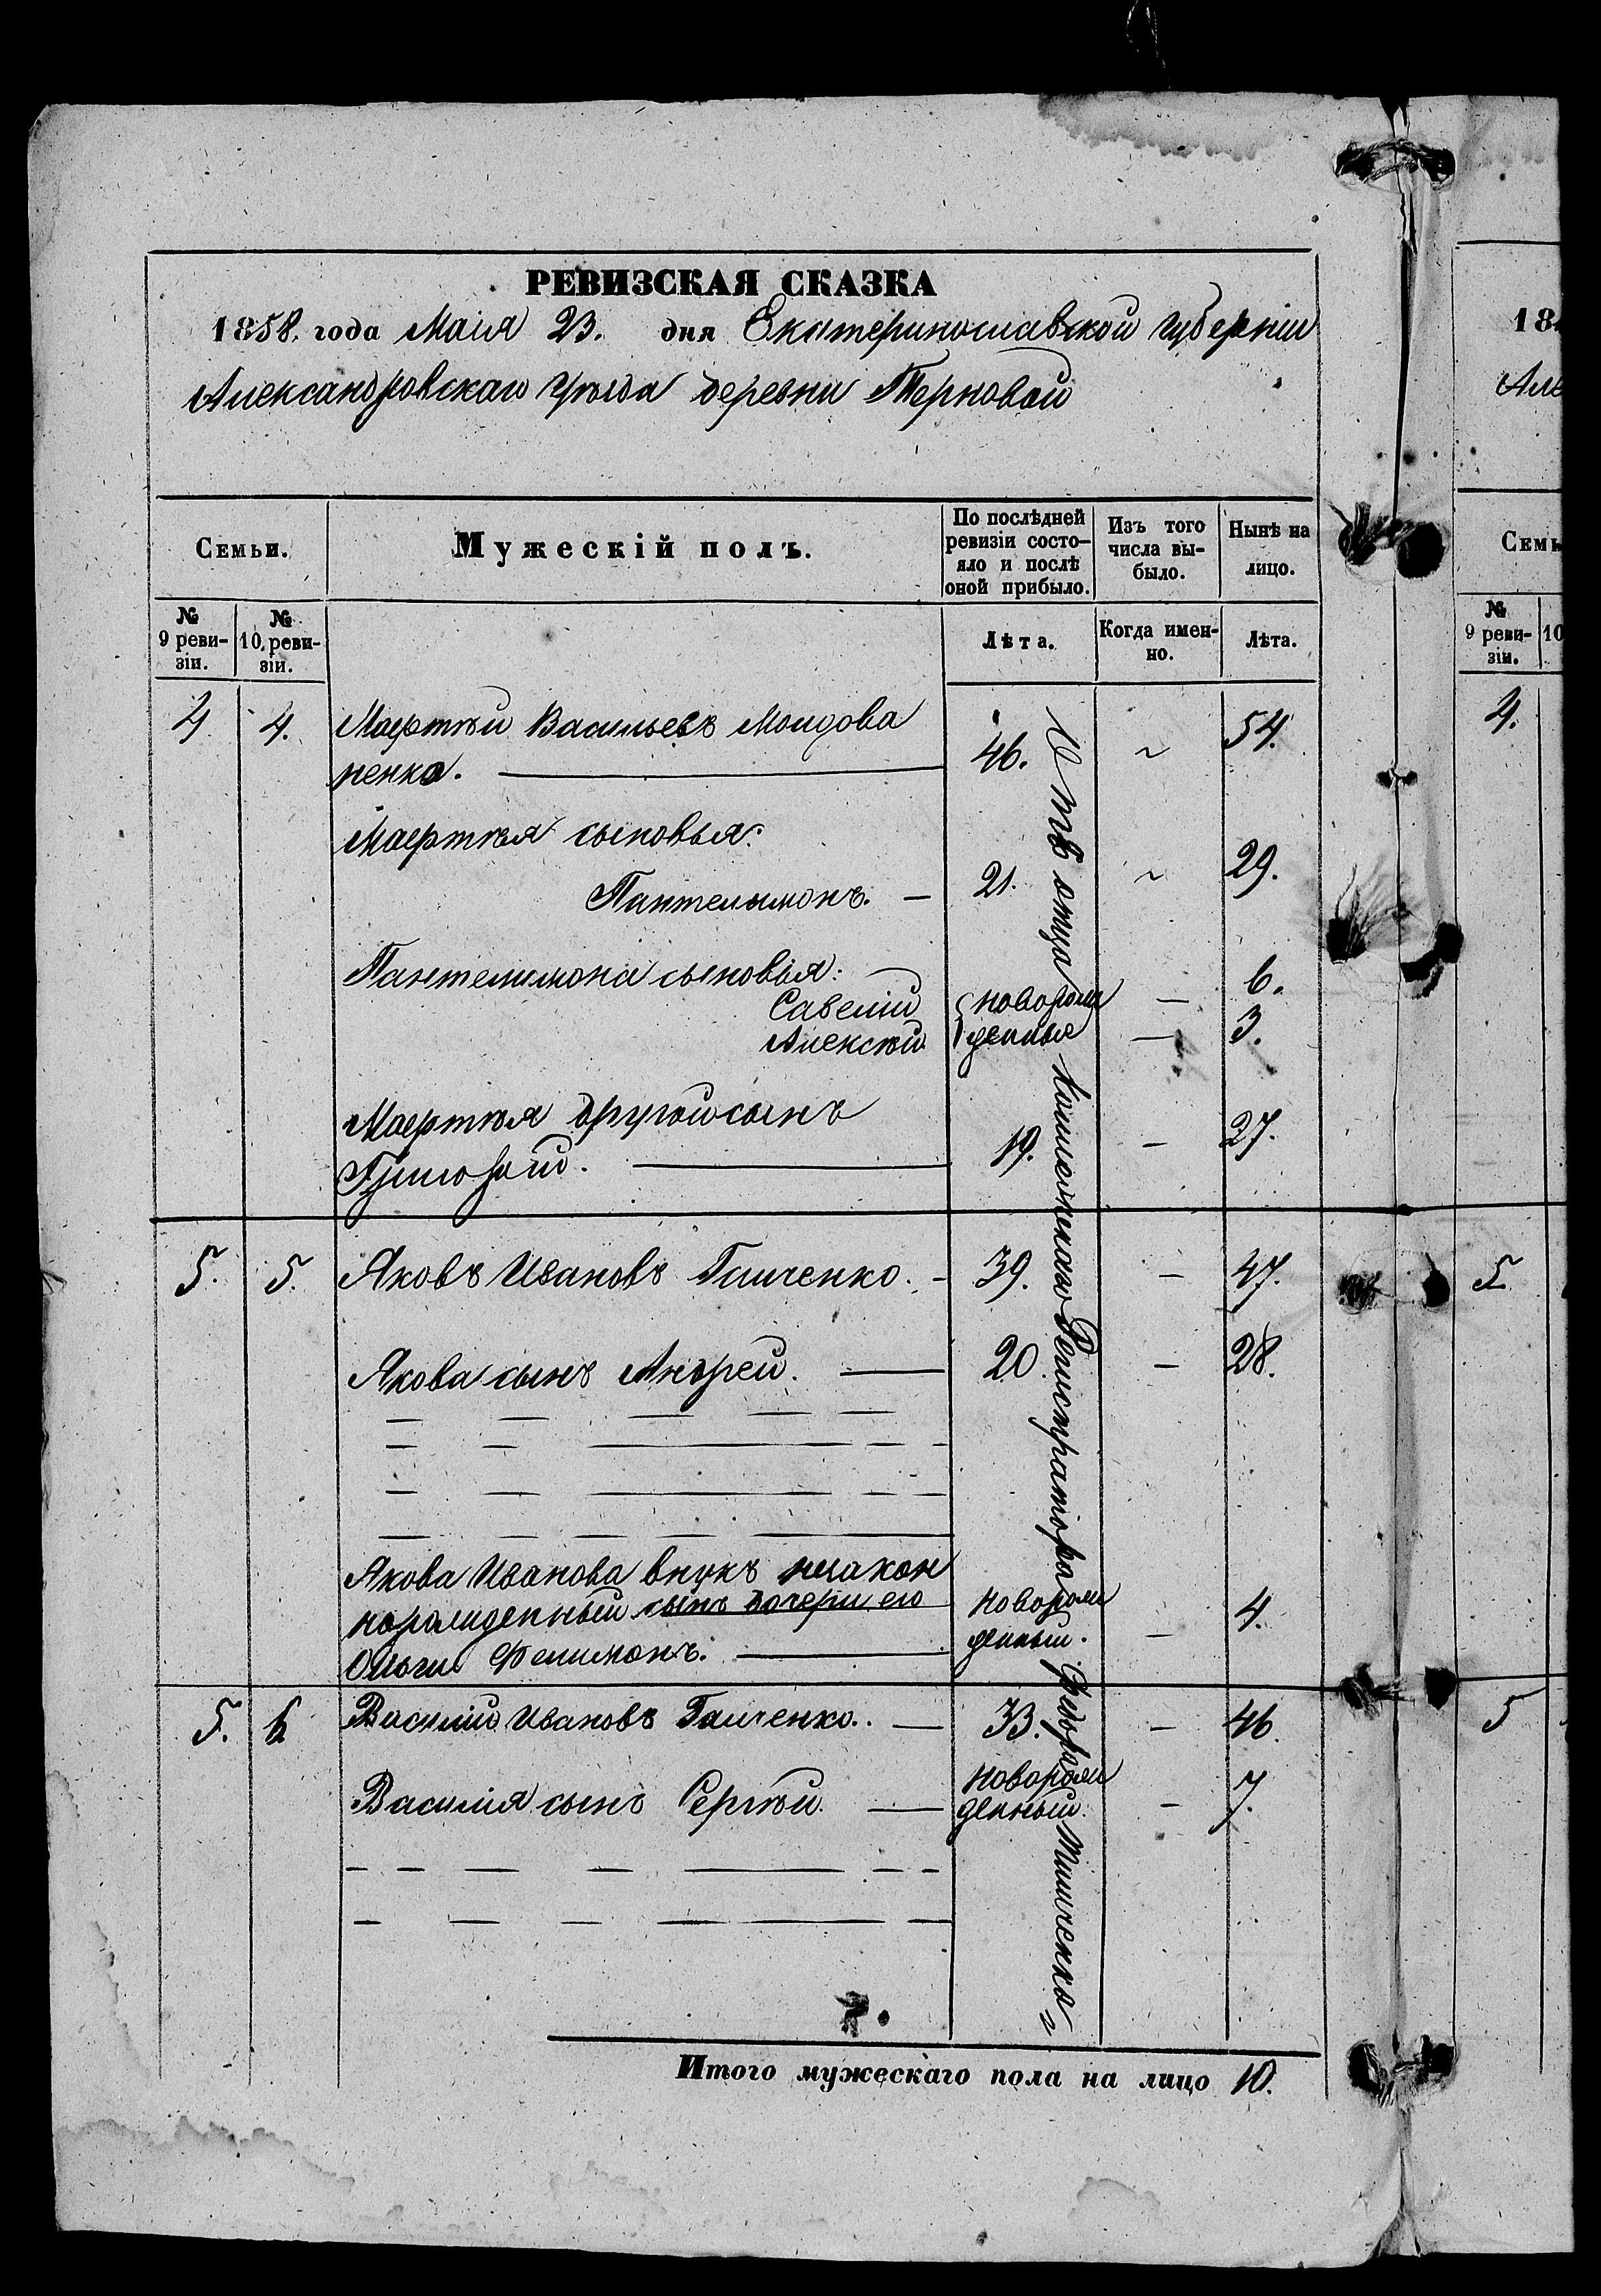 РЕВИЗСКАЯ СКАЗКА
1858. года Маія 23. дня Екатеринославской губерніи
Александровскаго уѣзда деревни Терновой
Семьи.
Мужескій полъ.
По послѣдней ревизіи состо-
яло и послѣ
оной прибыло.
Изъ того
числа вы-
было.
Нынѣ на
лицо.
№
9 реви-
зіи.
№
10 реви-
зіи.
Лѣта.
Когда имен-
но.
Лѣта.
4 4. Васильевъ Молдова
ненко. 46. 54.
сыновья:
Пантелимонъ. 21. 29.
Пантелимона сыновья: 6.
Савелій новорож
Алексѣй денныя 3.
другой сынъ 19. 27.
Григорій.
5. 5. Яковъ Ивановъ Галченко. 39. 47.
Якова сынъ Андрей. 20 28.
Якова Иванова внукъ незакон
норожденный сынъ дочери его новорож 4.
Ольги Фелимонъ. денный.
5. 6 Василій Ивановъ Галченко. 33. 46.
Василія сынъ Сергѣй. новорож
денный. 7.
отца Коллежскаго Регистратора Федора
Итого мужескаго пола на лицо 10.
18
Але
Семь
№
9 реви-
зіи.
10
4.
5.
5